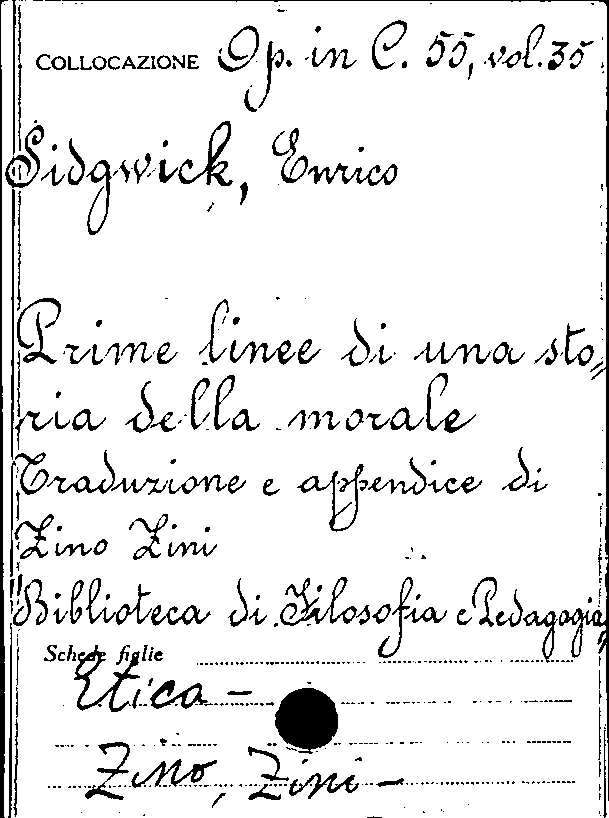 COLLOCAZIONE Op. in C. 55, vol. 35
Sidgwick, Enrico
Prime linee di una sto=
ria della morale
Traduzione e appendice di
Zino Zini
"Biblioteca di Filosofia e Pedagogia"
Schede figlie
Etica -
Zino, Zini -